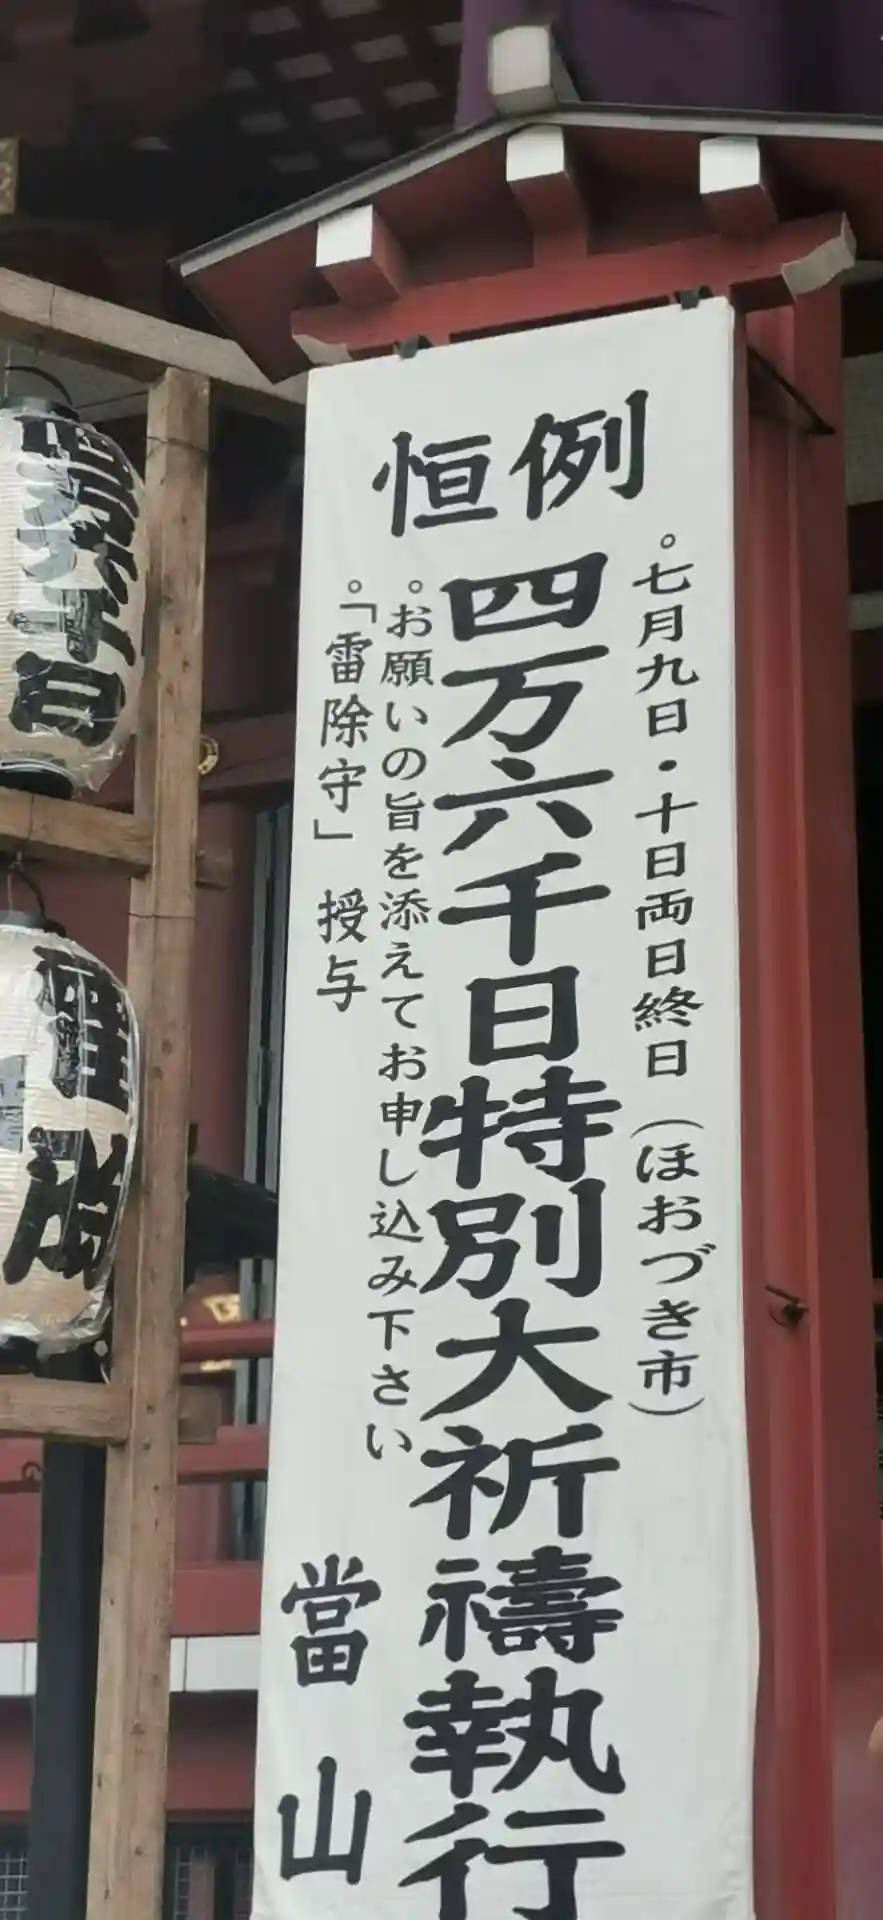 恒例
。七月九日・十日両日終日(ほおづき市)
四万六千日特別大祈禱執行
。お願いの旨を添えてお申し込み下さい
。「雷除守」授与
當山
四万六千日